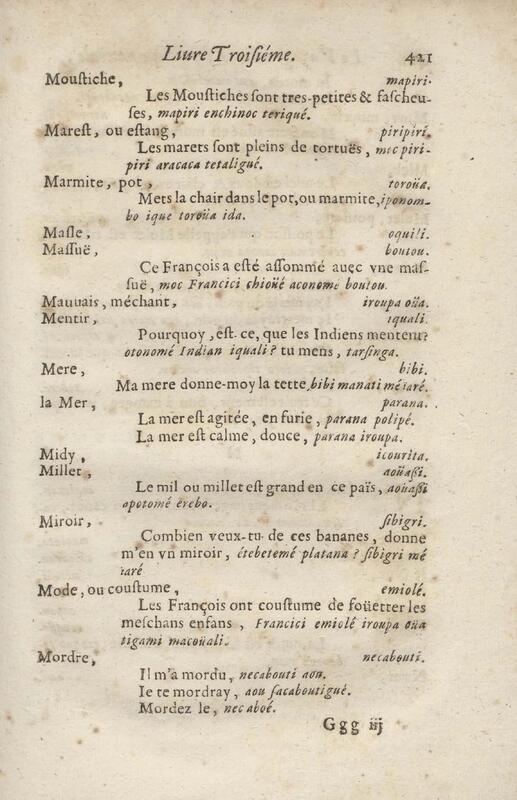 Liure Troisiéme. 421
Moustiche, mapiri.
Les Moustiches sont tres-petites & fascheu-
ses, mapiri enchinoc teriqué.
Marest, ou estang, piripiri.
Les marets sont pleins de tortuës, moc piri-
piri aracaca tetaligué.
Marmite, pot, toroüa.
Mets la chair dans le pot, ou marmite, iponom-
bo ique toroüa ida.
Masle, oquili.
Massuë, boutou.
Ce François a esté assommé auec vne mas-
suë, moc Francici chioüé aconomé boutou.
Mauuais, méchant, iroupa oüa.
Mentir, iquali.
Pourquoy, est. ce, que les Indiens mentent?
otonomé Indian iquali? tu mens, tarsinga.
Mere, bibi.
Ma mere donne-moy la tette, bibi manati méïaré.
la Mer, parana.
La mer est agitée, en furie, parana polipé.
La mer est calme, douce, parana iroupa.
Midy, icourita.
Millet, aoüassi.
Le mil ou millet est grand en ce païs, aoüassi
apotomé erebo.
Miroir, sibigri.
Combien veux-tu de ces bananes, donne
m'en vn miroir, étebetemé platana? sibigri mé
ïaré
Mode, ou coustume, emiolé.
Les François ont coustume de foüetter les
meschans enfans, Francici emiolé iroupa oüa
tigami macoüali.
Mordre, necabouti.
Il m'a mordu, necabouti aou.
Ie te mordray, aou sacaboutigué.
Mordez le, necaboé.
Ggg iij